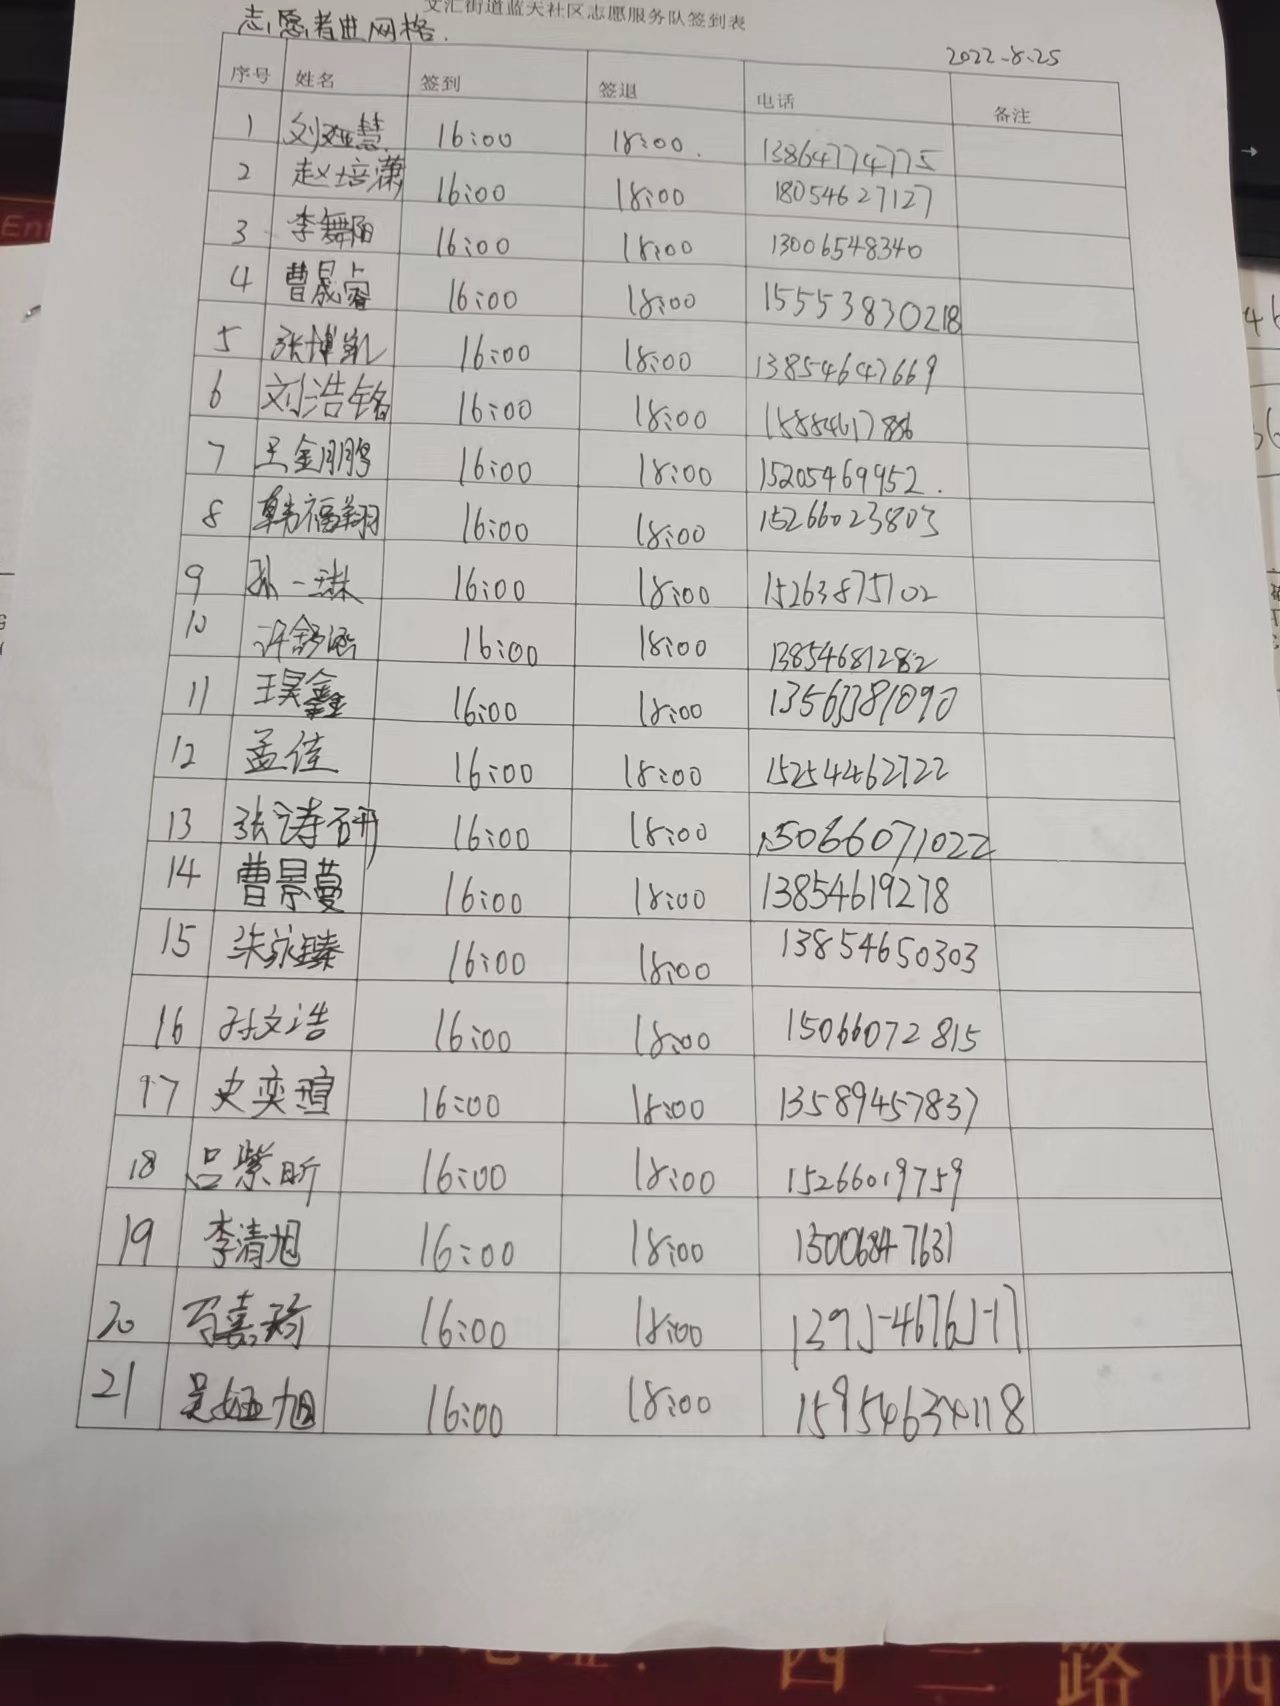 文汇街道蓝天社区志愿服务队签到表
志愿者进网格.
2022-8.25
序号 姓名 签到 签退 电话 备注
1 刘娅慧 16:00 18:00. 13864774775
2 赵培潇 16:00 18:00 18054627127
3 李舞阳 16:00 18:00 13006548340
4 曹晟睿 16:00 18:00 15553830218
5 张博凯 16:00 18:00 13854647669
6 刘浩铭 16:00 18:00 15884617886
7 王金鹏 16:00 18:00 15205469952.
8 韩福翔 16:00 18:00 15266023803
9 孙一琳 16:00 18:00 15263875102
10 许舒涵 16:00 18:00 13854681282
11 王昊鑫 16:00 18:00 13563381090
12 孟佳 16:00 18:00 15254462722
13 张涛研 16:00 18:00 15066071022
14 曹景蔓 16:00 18:00 13854619278
15 16:00 18:00 13854650303
16 孙文浩 16:00 18:00 15066072815
17 史奕瑄 16:00 18:00 13589457837
18 吕紫昕 16:00 18:00 15266019759
19 李清旭 16:00 18:00 15006847631
20 16:00 18:00
21 吴娅旭 16:00 18:00 15954634118
四三路西